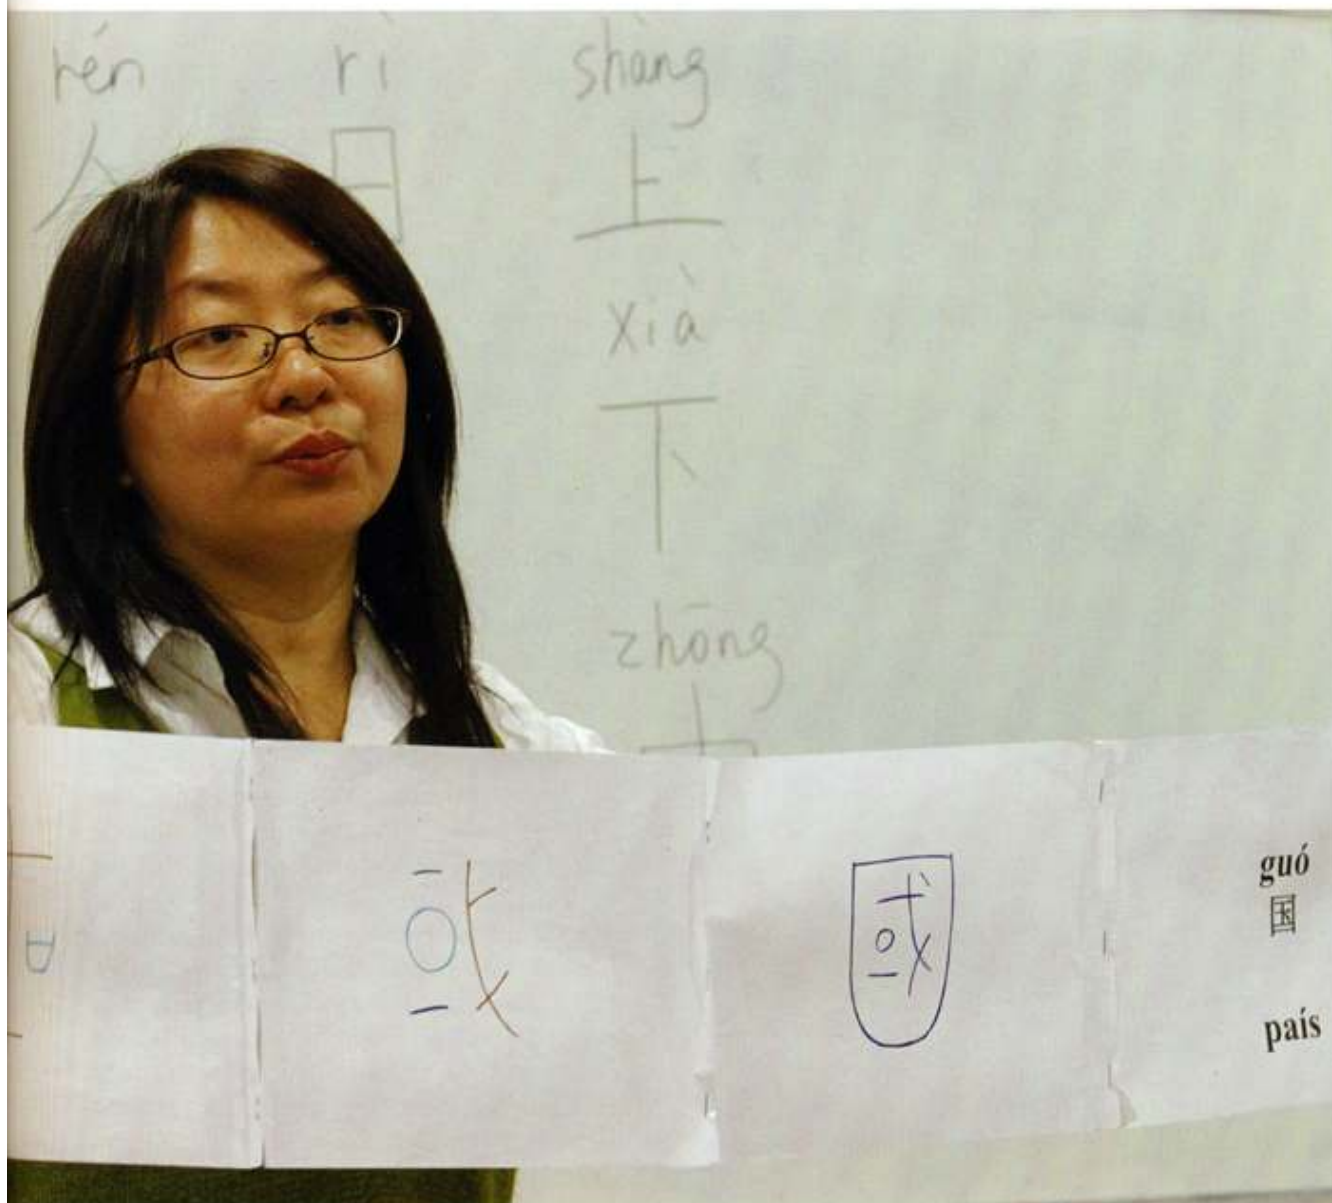 rén rì shàng
人 日 上
xià
下
zhōng
中
guó
国
país